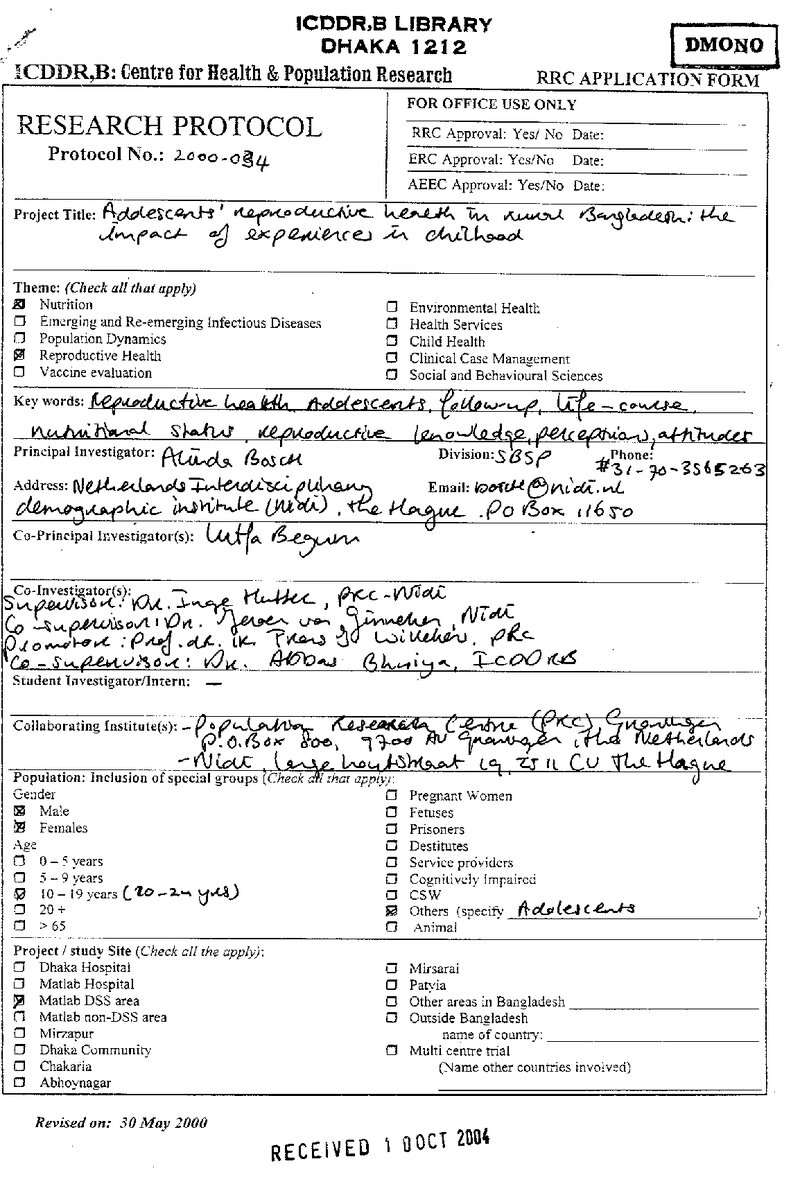 ICDDR,B LIBRARY
DHAKA 1212
DMONO
ICDDR,B: Centre for Health & Population Research
RRC APPLICATION FORM
RESEARCH PROTOCOL
Protocol No.: 2000-034
FOR OFFICE USE ONLY
RRC Approval: Yes/ No Date:
ERC Approval: Yes/No Date:
AEEC Approval: Yes/No Date:
Project Title: Adolescents' reproductive health in rural Bangladesh: the
impact of experiences in chilhood
Theme: (Check all that apply)
Nutrition
Emerging and Re-emerging Infectious Diseases
Population Dynamics
Reproductive Health
Vaccine evaluation
Environmental Health
Health Services
Child Health
Clinical Case Management
Social and Behavioural Sciences
Key words: Reproductive health, Adolescents, follow-up, life-course,
nutritional status, reproductive knowledge, perceptions, attitudes
Principal Investigator: Alinda Bosch
Division: SBSP
Phone:
#31-70-3565263
Address: Netherlands Interdisciplinary
Email: bosch@nidi.nl
demographic institute (Nidi), the Hague. PO Box 11650
Co-Principal Investigator(s): Lutfa Begum
Co-Investigator(s):
Supervisor: Dr. Inge Hutter, PRC-Nidi
Co-supervisor: Dr. Jeroen van Ginneken, Nidi
Promotor: Prof. dr. ir. Frans Willekens, PRC
Co-supervisor: Dr. Abbas Bhuiya, ICDDRB
Student Investigator/Intern: —
Collaborating Institute(s): - Population Research Centre (PRC) Groningen
P.O. Box 800, 9700 AV Groningen, the Netherlands
- Nidi, lange houtstraat 19, 2511 CV The Hague
Population: Inclusion of special groups (Check all that apply):
Gender
Male
Females
Age
0 – 5 years
5 – 9 years
10 – 19 years (20-24 yrs)
20 +
> 65
Pregnant Women
Fetuses
Prisoners
Destitutes
Service providers
Cognitively Impaired
CSW
Others (specify Adolescents )
Animal
Project / study Site (Check all the apply):
Dhaka Hospital
Matlab Hospital
Matlab DSS area
Matlab non-DSS area
Mirzapur
Dhaka Community
Chakaria
Abhoynagar
Mirsarai
Patyia
Other areas in Bangladesh
Outside Bangladesh
name of country:
Multi centre trial
(Name other countries involved)
Revised on: 30 May 2000
RECEIVED 10 OCT 2004